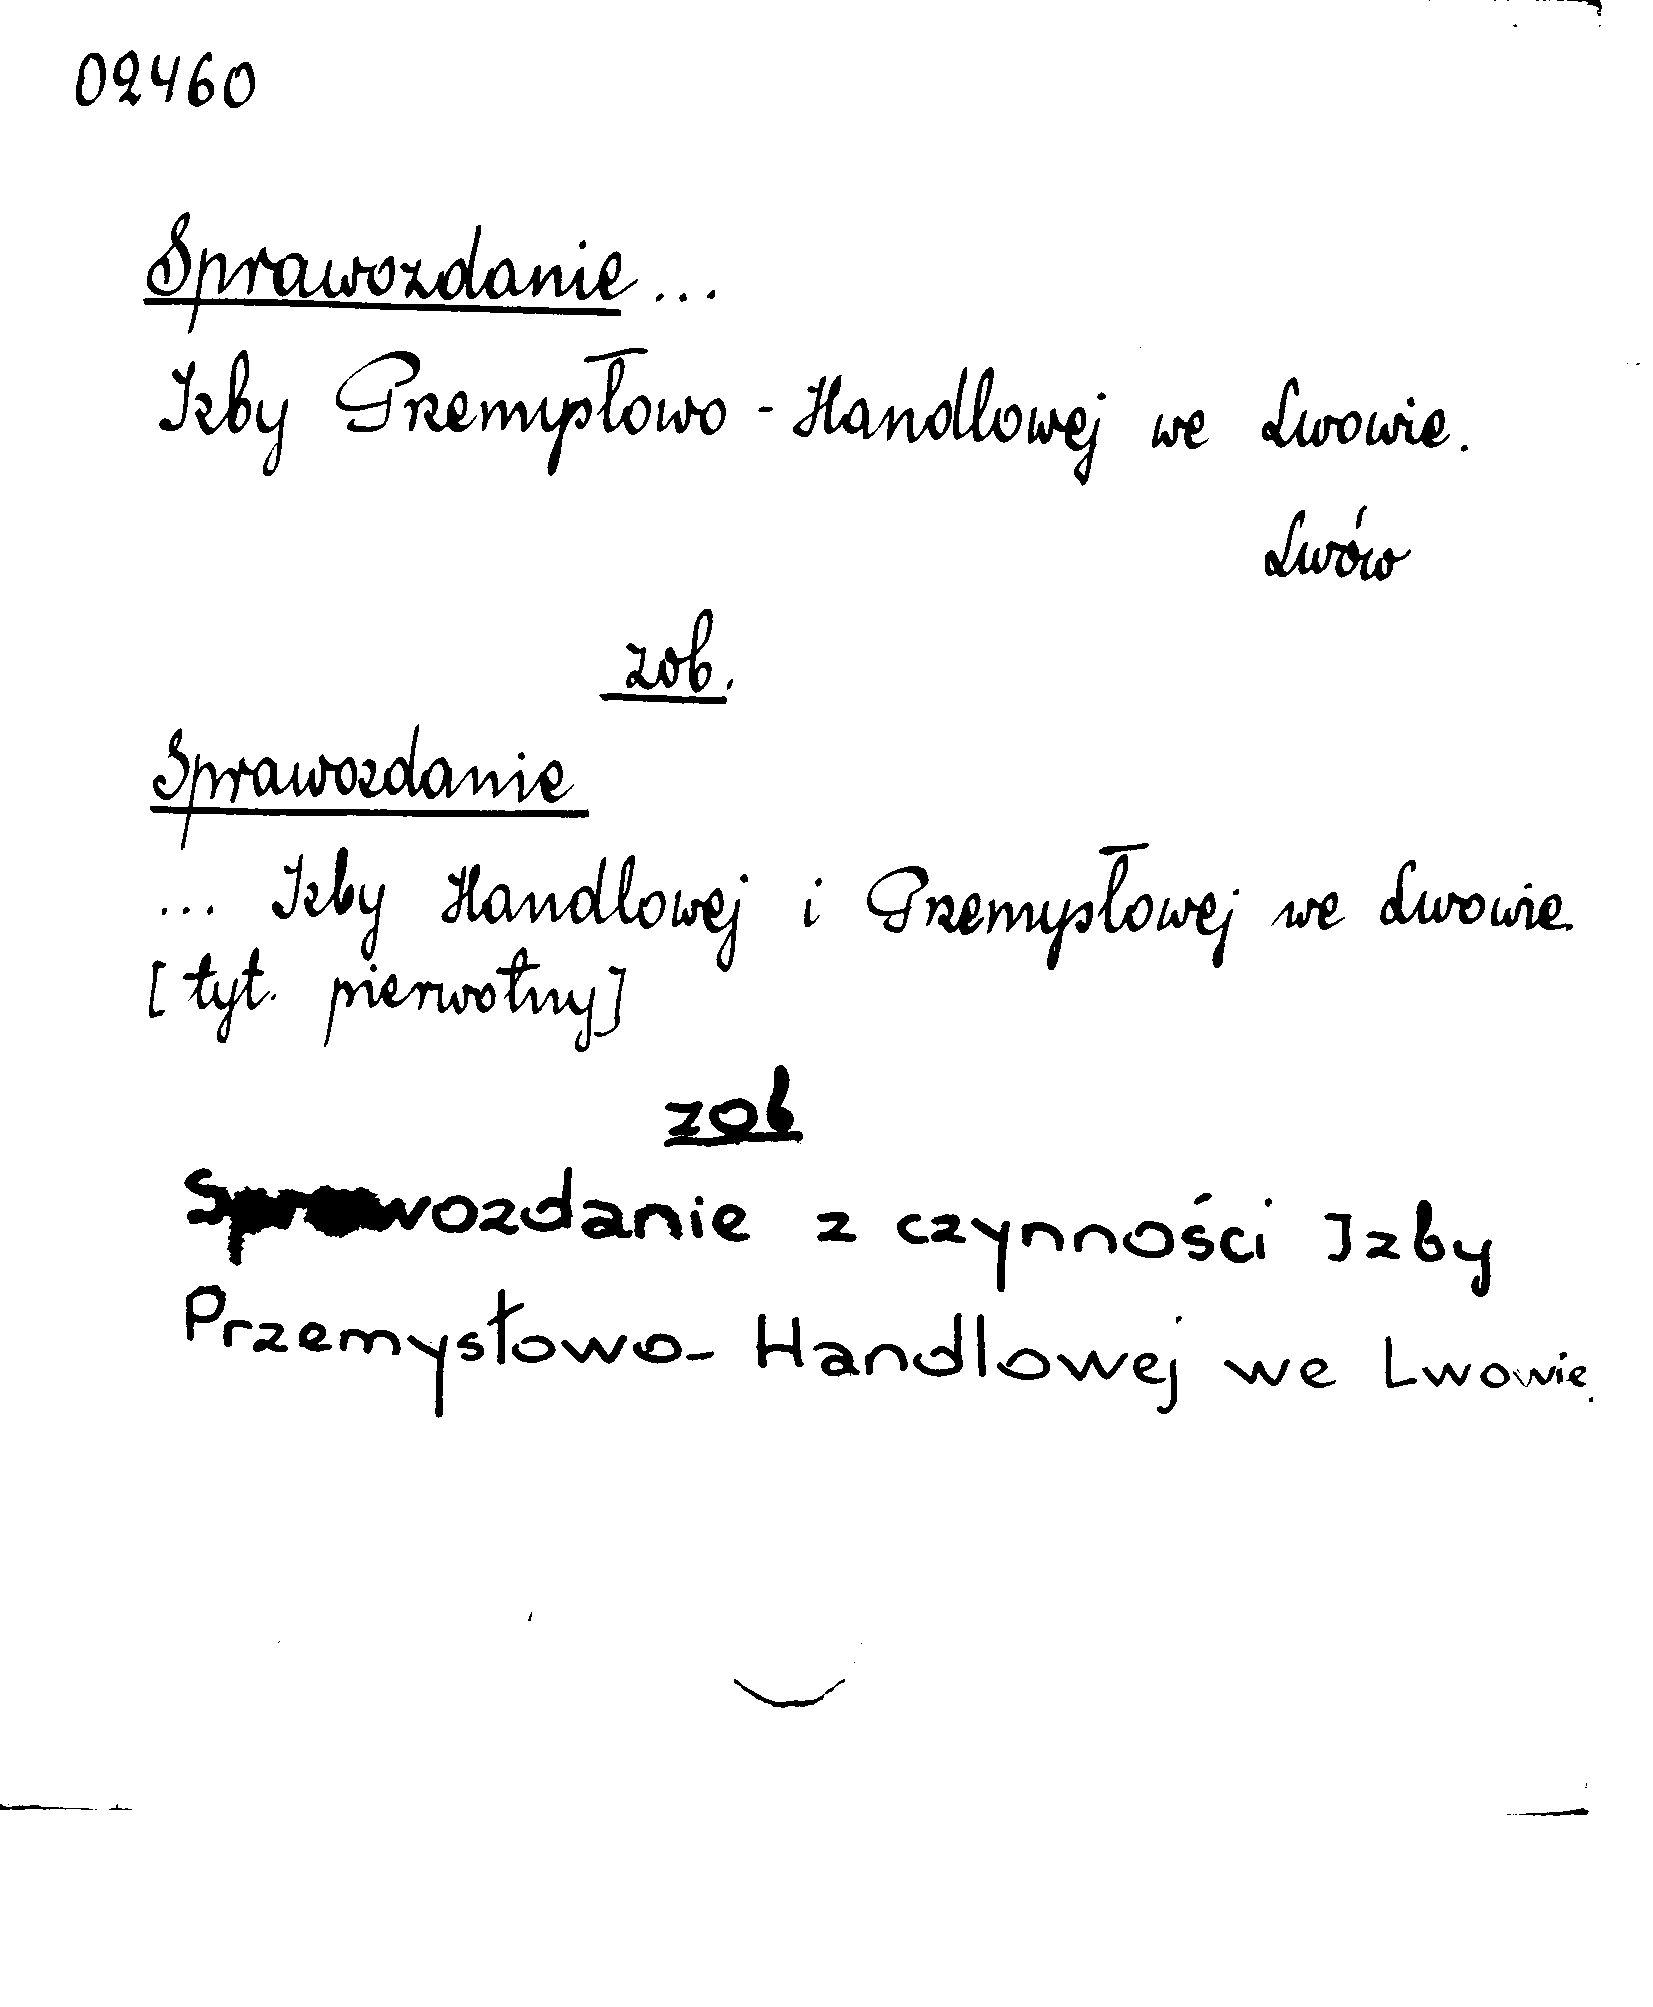 02460
Sprawozdanie...
Izby Przemysłowo-Handlowej we Lwowie.
Lwów
zob.
Sprawozdanie
... Izby Handlowej i Przemysłowej we Lwowie.
[tyt. pierwotny]
zob
Sprawozdanie z czynności Izby
Przemysłowo-Handlowej we Lwowie.